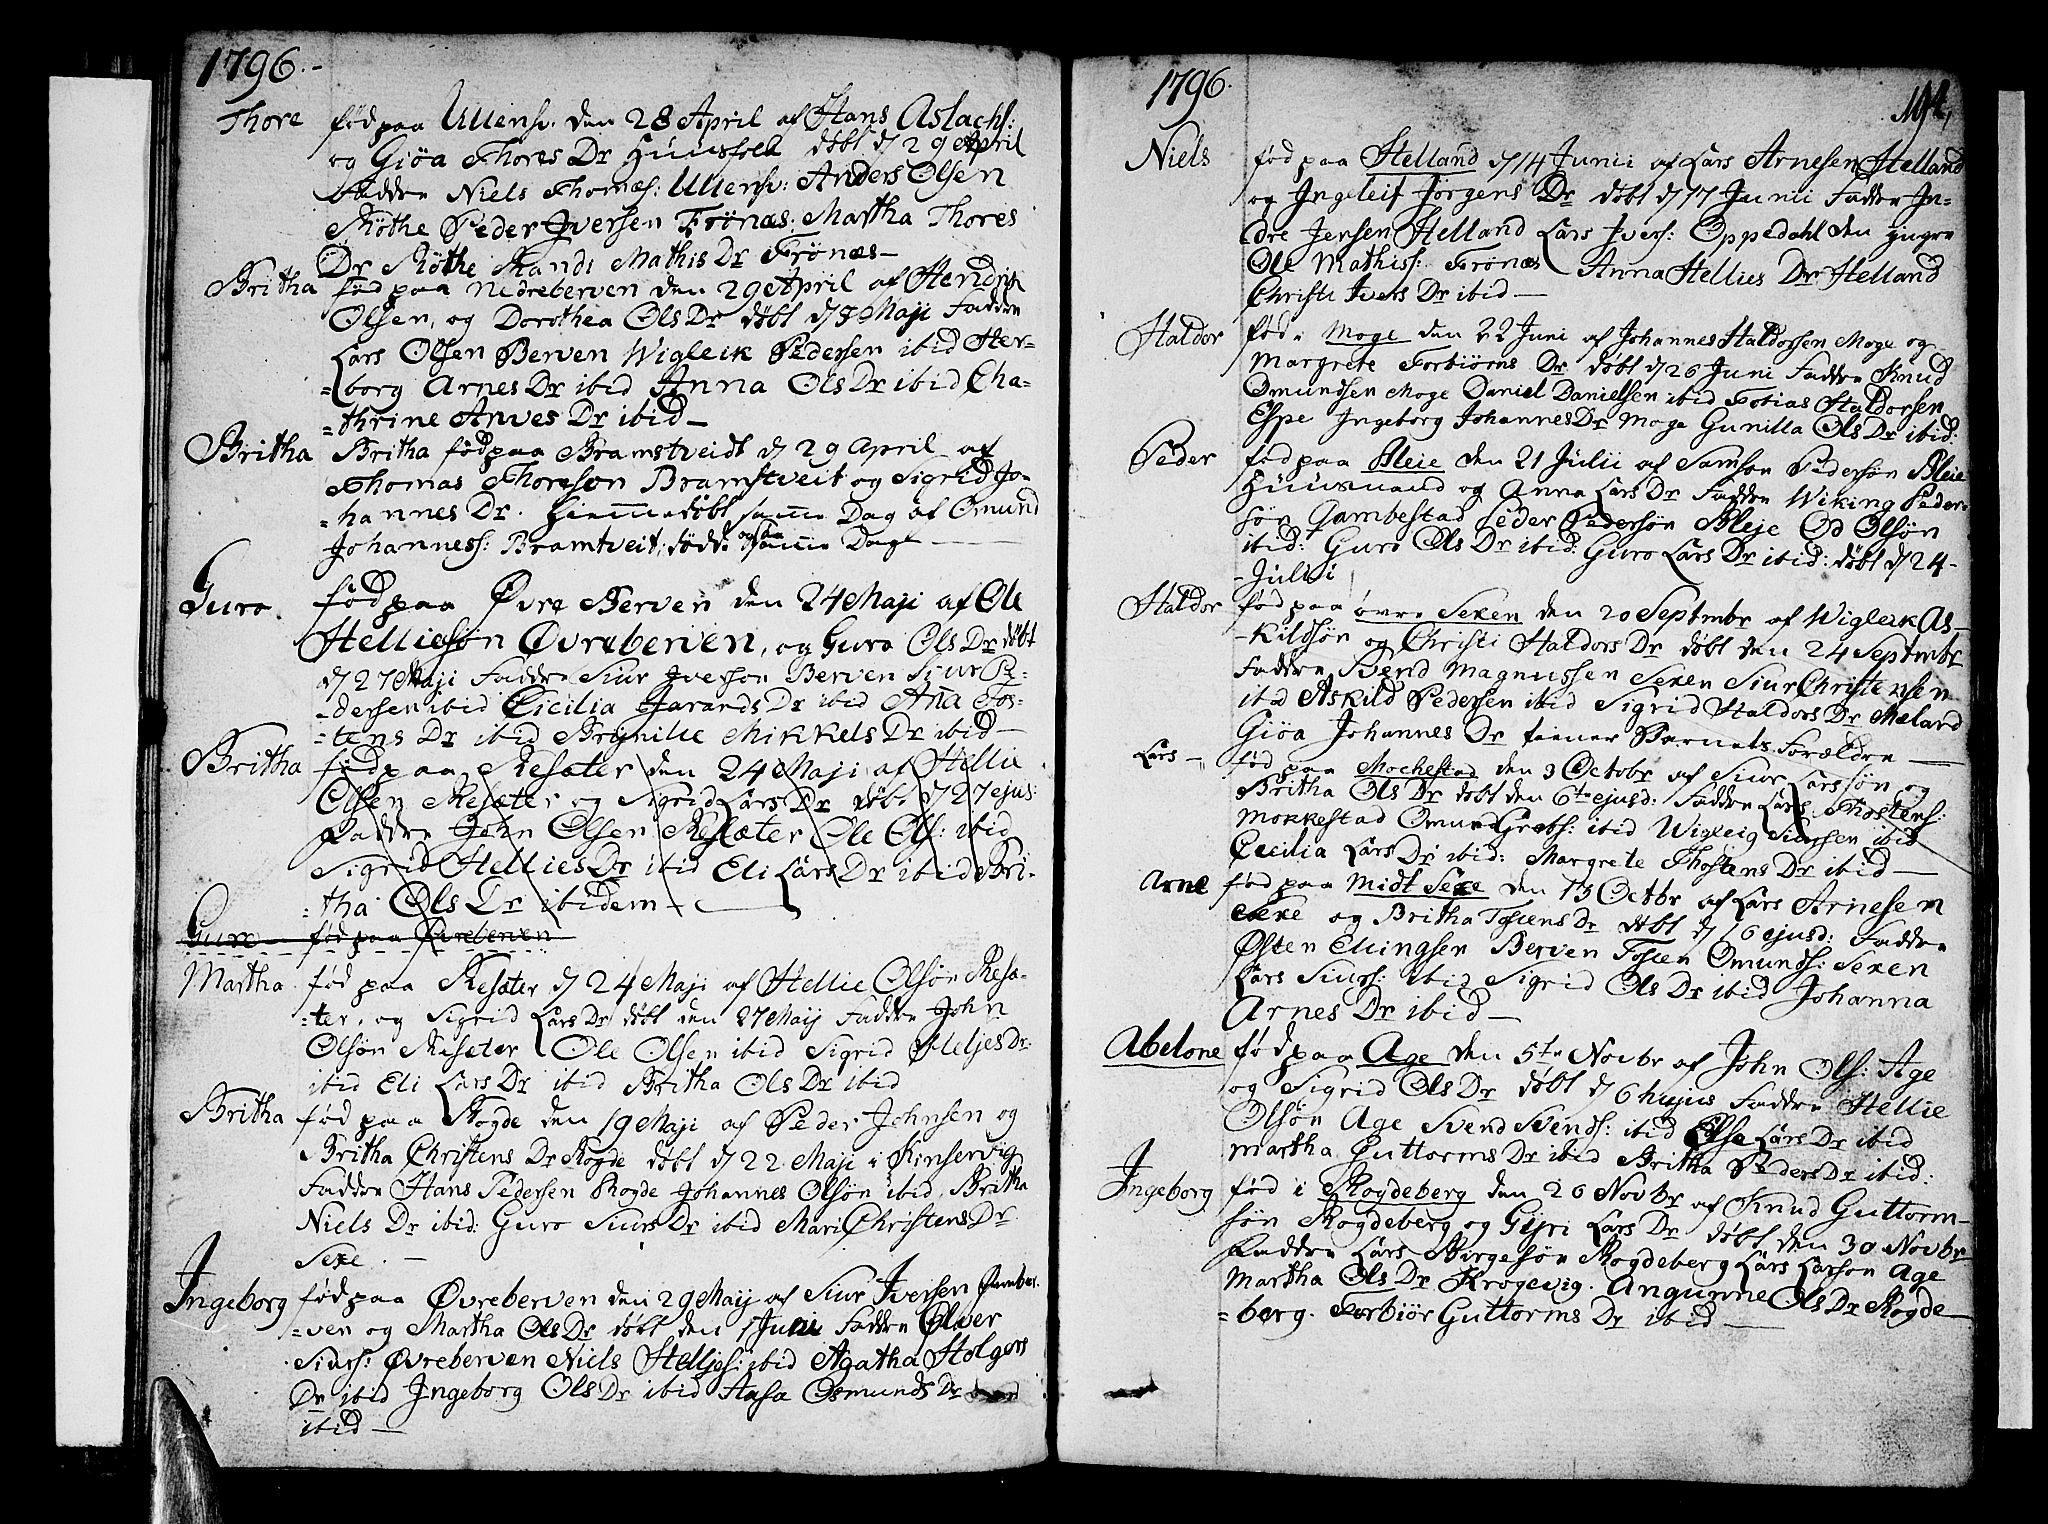 1796.-
Thore fød paa Ullensv. den 28 April af Hans Aslachs:
og Giöa Thores Dr Huusfolk døbt d 29 April
Faddre Niels Thomæs: Ullensv: Anders Olsen
Røthe Peder Iversen Frønæs: Martha Thores
Dr Røthe Randi Mathis Dr Frønæs-
Britha fød paa Nedreberven den 29 April af Hendrik
Olsen, og Dorothea Ols Dr døbt d Maji Faddre
Lars Olsen Berven Wigleik Pedersen ibid Her-
=borg Arnes Dr ibid Anna Ols Dr ibid Cha-
=thrine Anves Dr ibid-
Britha Britha fød paa Bramstveidt d 29 April af
Thomas Thoreson Bramstveit og Sigrid Jo-
=hannes Dr. Hiemmedøbt samme Dag af Omund
Johanness: Bramtveit, døde ogsaa samme Dag
Guro fød paa Øvre Berven den 24 Maji af Ole
Helliesøn Øvreberven, og Guro Ols Dr døbt
d 27 Maji Faddre Siur Iverson Berven Siur Pe-
-dersen ibid Cicilia Jarands Dr ibid Ana Tos-
=tens Dr ibid Brynilie Mikkels Dr ibid-
Britha fød paa Resæter den 24 Maji af Hellie
Olsen Resæter og Sigrid Lars Dr døbt d 27 ejus:
Faddre John Olsen Resæter Ole Ols: ibid
Sigrid Hellies Dr ibid Eli Lars Dr ibid Bri-
=tha Ols Dr ibidem-
Guro fød paa Øvreberven
Martha fød paa Resæter d 24 Maji af Hellie Olsøn Resæ-
=ter, og Sigrid Lars Dr døbt den 27 Maij Faddre John
Olsøn Resæter Ole Olsen ibid Sigrid Heljes Dr
ibid Eli Lars Dr ibid Britha Ols Dr ibid
Britha fød paa Rogde den 19 Maji af Peder Johnsen og
Britha Christens Dr Rogde døbt d 22 Maji i Kinservig
Faddre Hans Pedersen Rogde Johannes Olsøn ibid. Britha
Niels Dr ibid: Guro Siurs Dr ibid Mari Christens Dr
Sexe.-
Ingeborg fød paa Øvreberven den 29 Maij af Siur Iversen
=ven og Martha Ols Dr døbt den 1 Juni Faddre Olver
Siurs: Øvreberven Niels Helljes: ibid Agatha Holgers
Dr ibid Ingeborg Ols Dr ibid Aasa Osmunds Dr
ibid-
1796.
194,
Niels fød paa Helland d 14 Junii af Lars Arnesen Helland
og Ingeleif Jørgens Dr døbt d 17 Junii Faddre In-
dre Jensen Helland Lars Ivers: Oppedahl den yngre
Ole Mathiss: Frønæs Anna Hellies Dr Helland
Christi Ivers Dr ibid-
Haldor fød i Moge den 22 Juni af Johannes Haldorsen Moge og
Margrete Torbiörns Dr døbt d 26 Juni Faddre Knud
Omundsen Moge Daniel Danielsen ibid Tobias Haldorsen
Espe Ingeborg Johannes Dr Moge Gunilla Ols Dr ibid:
Peder fød paa Bleie den 21 Julii af Samson Pedersøn Bleie
Huusmand og Anna Lars Dr Faddre Wiking Peder-
søn Jambestad Peder Pedersøn Bleje Od Olsøn
ibid: Guro Ols Dr ibid: Guro Lars Dr ibid: døbt d 24-
-Julii
Haldor fød paa övre Sexen den 20 Septmbr af Wigleik As-
-kildsøn og Christi Haldors Dr døbt den 24 Septmbr
Faddre Svend Magnussen Sexen Siur Christensen
ibd Askild Pedersen ibid Sigrid Haldors Dr Mæland
Giöa Johannes Dr tiener Barnets Forældre-
Lars- fød paa Mochestad den 3 Octobr af Siur Larssøn og
Britha Ols Dr døbt den 6te ejusd: Faddre Lars Thostens:
Mokkestad Omund Grebs: ibid Wigleig Siursen ibid
Cecilia Lars Dr ibid: Margrete Thostens Dr ibid-
Arne fød paa Midt Sexe den 13 Octbr af Lars Arnesen
Sexe og Britha Tosiens Dr døbt d 16 ejusd: Faddre
Østen Ellingsen Berven Tosien Omunds: Sexen
Lars Siurs: ibid Sigrid Ols Dr ibid Johanna
Arnes Dr ibid-
Abelone fød paa Age den 5te Novbr af John Ols: Age
og Sigrid Ols Dr døbt d 6 hujus Faddre Hellie
Olsøn Age Svend Svends: ibid Else Lars Dr ibid
Martha Guttorms Dr ibid Britha Peders Dr ibid:
Ingeborg fød i Rogdeberg den 26 Novbr af Knud Guttorm-
søn Rogdeberg og Gyri Lars Dr døbt den 30 Novbr
Faddre Lars Børgesøn Rogdeberg Lars Larson Age
Martha Ols Dr Krogevig. Angunne Ols Dr Rogde-
=berg. Torbiör Guttorms Dr ibid-